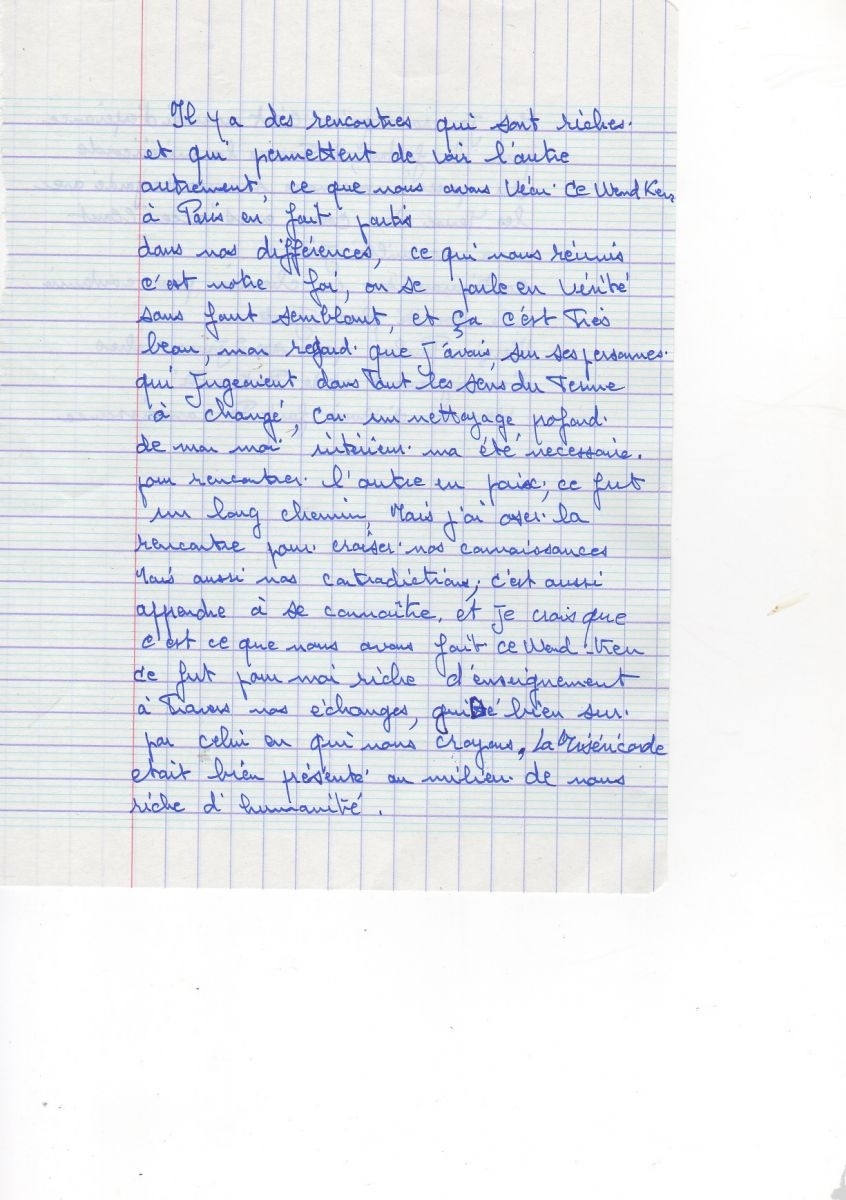 Il y a des rencontres qui sont riches.
et qui permettent de voir l'autre
autrement, ce que nous avons vécu. Ce Wend Ken
à Paris en fait partis
dans nos différences, ce qui nous réunis
c'est notre foi, on se parle en vérité
sans faut semblant, et ça c'est Très
beau, mon regard. que j'avais, sur ses personnes.
qui Jugeaient dans Tout les sens du Terme
à changé, car un nettoyage pofond.
de mon moi intérieur. ma été nécessaire.
pour rencontrer. l'autre en paix, ce fut
un long chemin, Mais j'ai oser la
rencontre pour croiser nos connaissances
Mais aussi nos contradictions, c'est aussi
apprendre à se connaître, et je crois que
c'est ce que nous avons fait ce Wend-Ken
Ce fut pour moi riche d'enseignement
à Travers nos échanges, guidé bien sur.
par celui en qui nous croyons, La Miséricorde
etait bien présenté au milieu de nous
riche d'humanité.